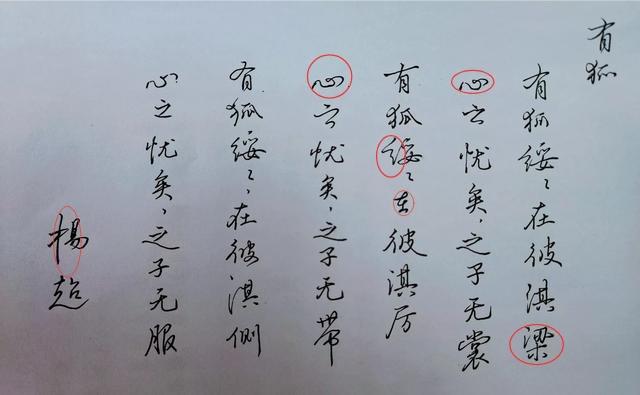 有狐
有狐绥〻在彼淇梁
心之忧矣,之子无裳
有狐绥〻在彼淇厉
心之忧矣,之子无带
有狐绥〻在彼淇侧
心之忧矣,之子无服
楊超